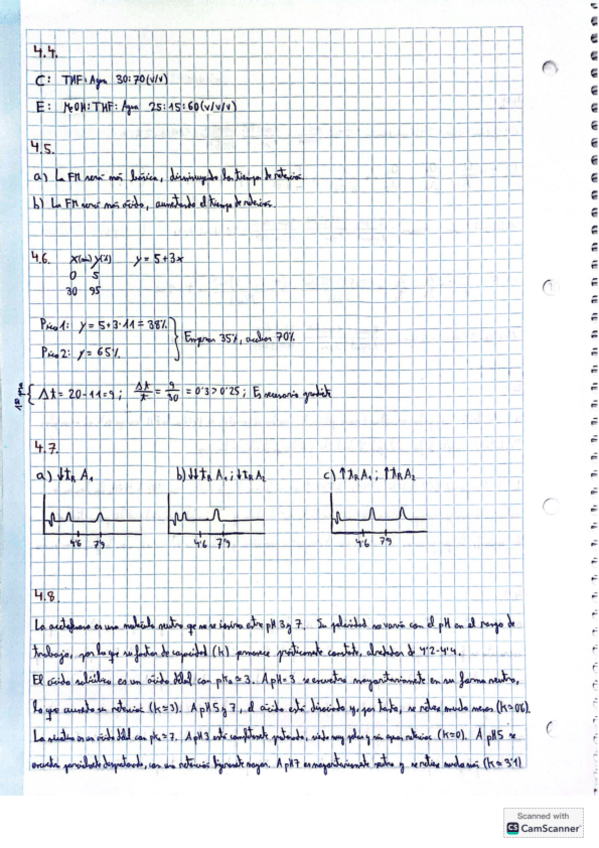 4.4.
C: THF:Agua 30:70(v/v)
E: MeOH:THF:Agua 25:15:60(v/v/v)
4.5.
a) La FM será más básica, disminuyendo los tiempos de retención.
b) La FM será más ácida, aumentando el tiempo de retención.
4.6. x(min) y(%) y = 5+3x
0 5
30 95
Pico 1: y = 5+3·11 = 38%
Empezar 35%, acabar 70%
Pico 2: y = 65%
1º
Δt = 20-11=9; Δt/t = 9/30 = 0'3 > 0'25; Es necesario gradiente
4.7.
a) ↓tR A1 b) ↓↓tR A1; ↓tR A2 c) ↑tR A1; ↑tR A2
4'6 7'9 4'6 7'9 4'6 7'9
4.8.
es una molécula neutra que no se ioniza entre pH 3 y 7. Su polaridad no varía con el pH en el rango de
trabajo, por lo que su factor de capacidad (k) permanece prácticamente constante, alrededor de 4'2-4'4.
El ácido salicílico es un ácido débil con pka ≈ 3. A pH=3 se encuentra mayoritariamente en su forma neutra,
lo que aumenta su retención (k≈3). A pH 5 y 7, el ácido está disociado y, por tanto, se retiene mucho menos (k≈0'6).
La es un ácido débil con pka ≈ 7. A pH 3 está completamente protonada, siendo muy polar y sin apenas retención (k≈0). A pH 5 se
encuentra parcialmente desprotonada, con una retención ligeramente mayor. A pH 7 es mayoritariamente neutra y se retiene mucho más (k≈3'1)
Scanned with
CS CamScanner